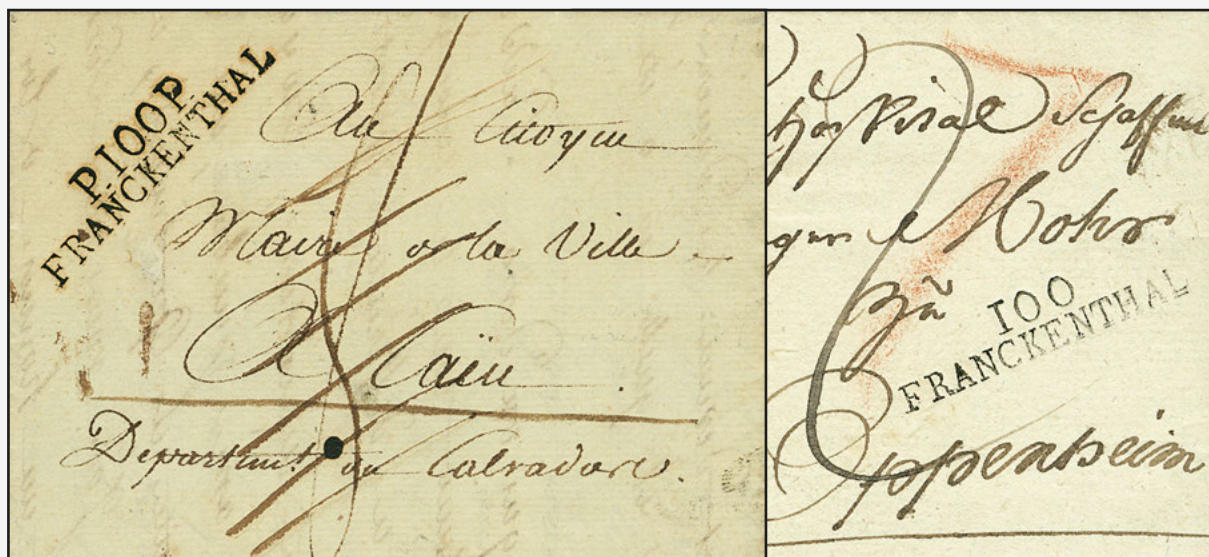 P100P
FRANCKENTHAL
Au Citoyen
Maire de la Ville
A Caën
Departement du Calvados.
Hospital Schaffner
Mohr
Zu
100
FRANCKENTHAL
Oppenheim